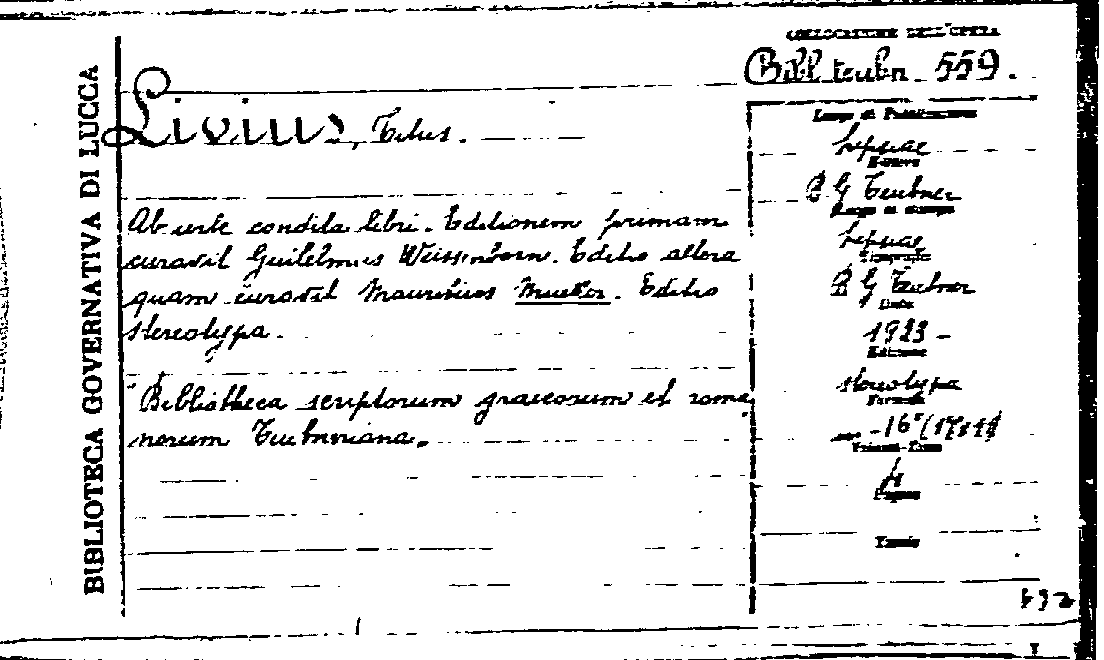 BIBLIOTECA GOVERNATIVA DI LUCCA
COLLOCAZIONE DELL'OPERA
Bibl. teubn. 559.
Livius, Titus.
Ab urbe condita libri. Editionem primam
curavit Guilelmus Weissenborn. Editio altera
quam curavit Mauritius Mueller. Editio
stereotypa.
Bibliotheca scriptorum graecorum et roma
norum Teubneriana.
Luogo di Pubblicazione
Lipsiae
Editore
B G Teubner
Luogo di stampa
Lipsiae
Tipografo
B G Teubner
Data
1923 -
Edizione
stereotypa
Formato
- 16° (17
Volumi-Tomo
Pagine
Tavole